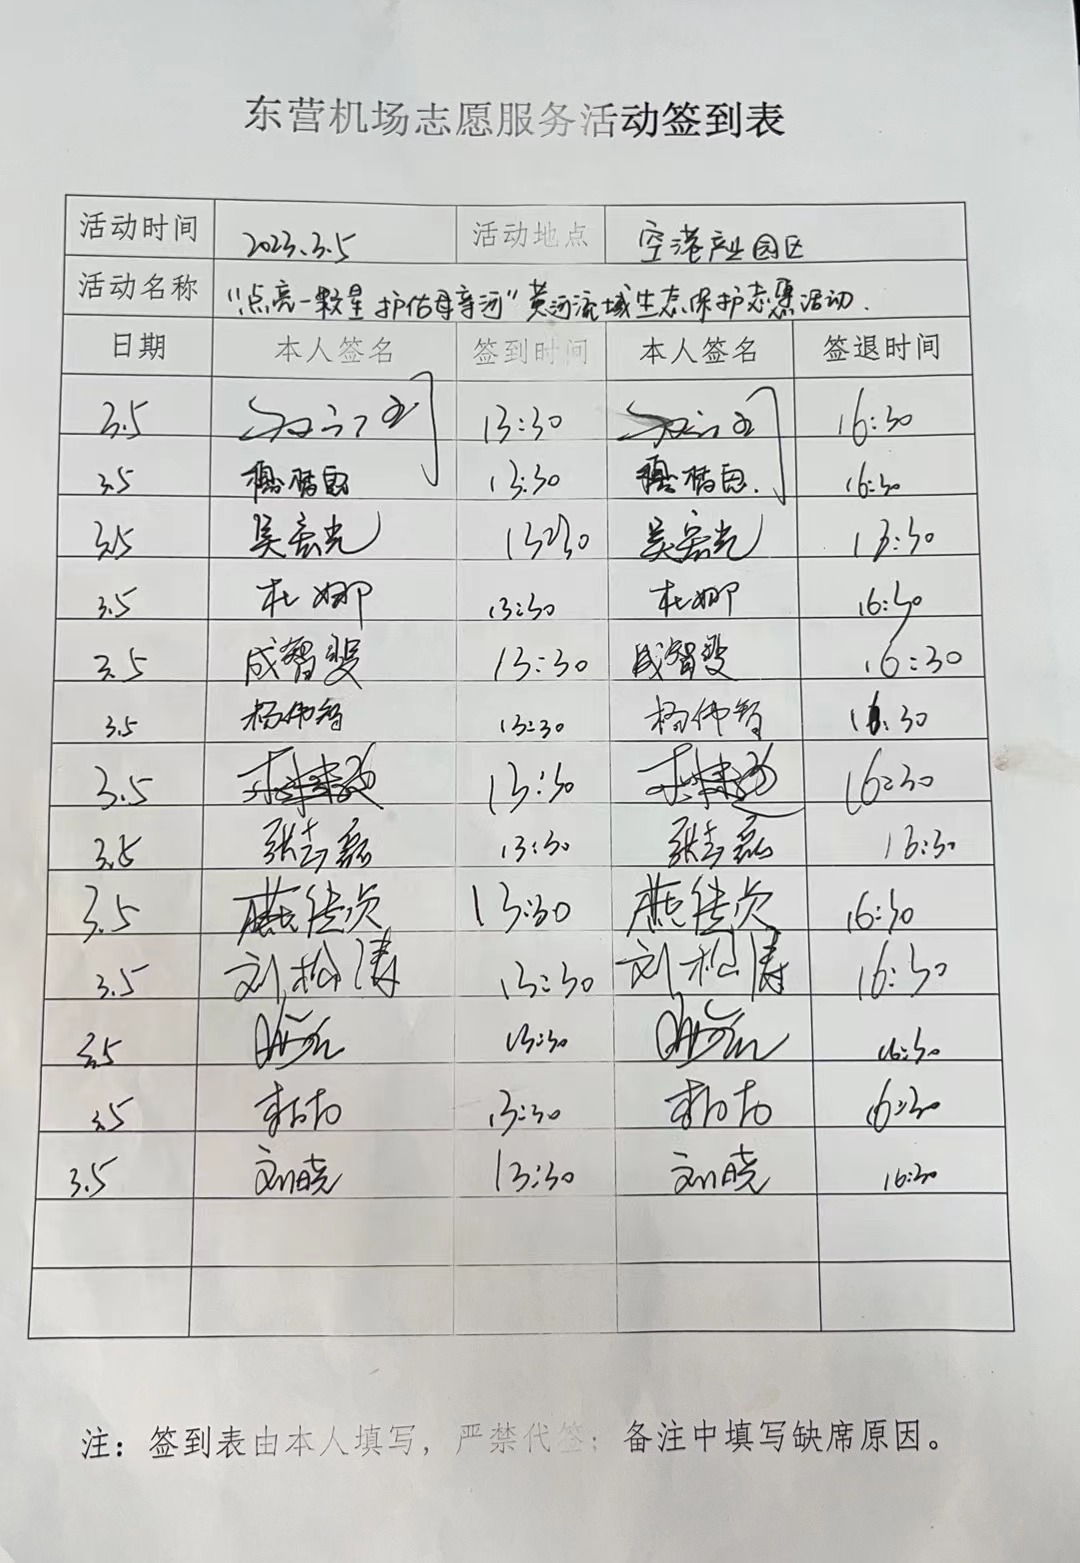 东营机场志愿服务活动签到表
活动时间 2023.3.5 活动地点 空港产业园区
活动名称 “点亮一颗星 护佑母亲河”黄河流域生态保护志愿活动.
日期 本人签名 签到时间 本人签名 签退时间
3.5 13:30 16:30
3.5 13:30 16:30
3.5 吴宏光 13:30 吴宏光 13:30
3.5 杜娜 13:30 杜娜 16:30
3.5 成智斐 13:30 成智斐 16:30
3.5 杨伟智 13:30 杨伟智 16:30
3.5 13:30 16:30
3.5 张志磊 13:30 张志磊 16:30
3.5 13:30 16:30
3.5 刘松涛 13:30 刘松涛 16:30
3.5 13:30 16:30
3.5 13:30 16:30
3.5 刘晓 13:30 刘晓 16:30
注：签到表由本人填写，严禁代签；备注中填写缺席原因。